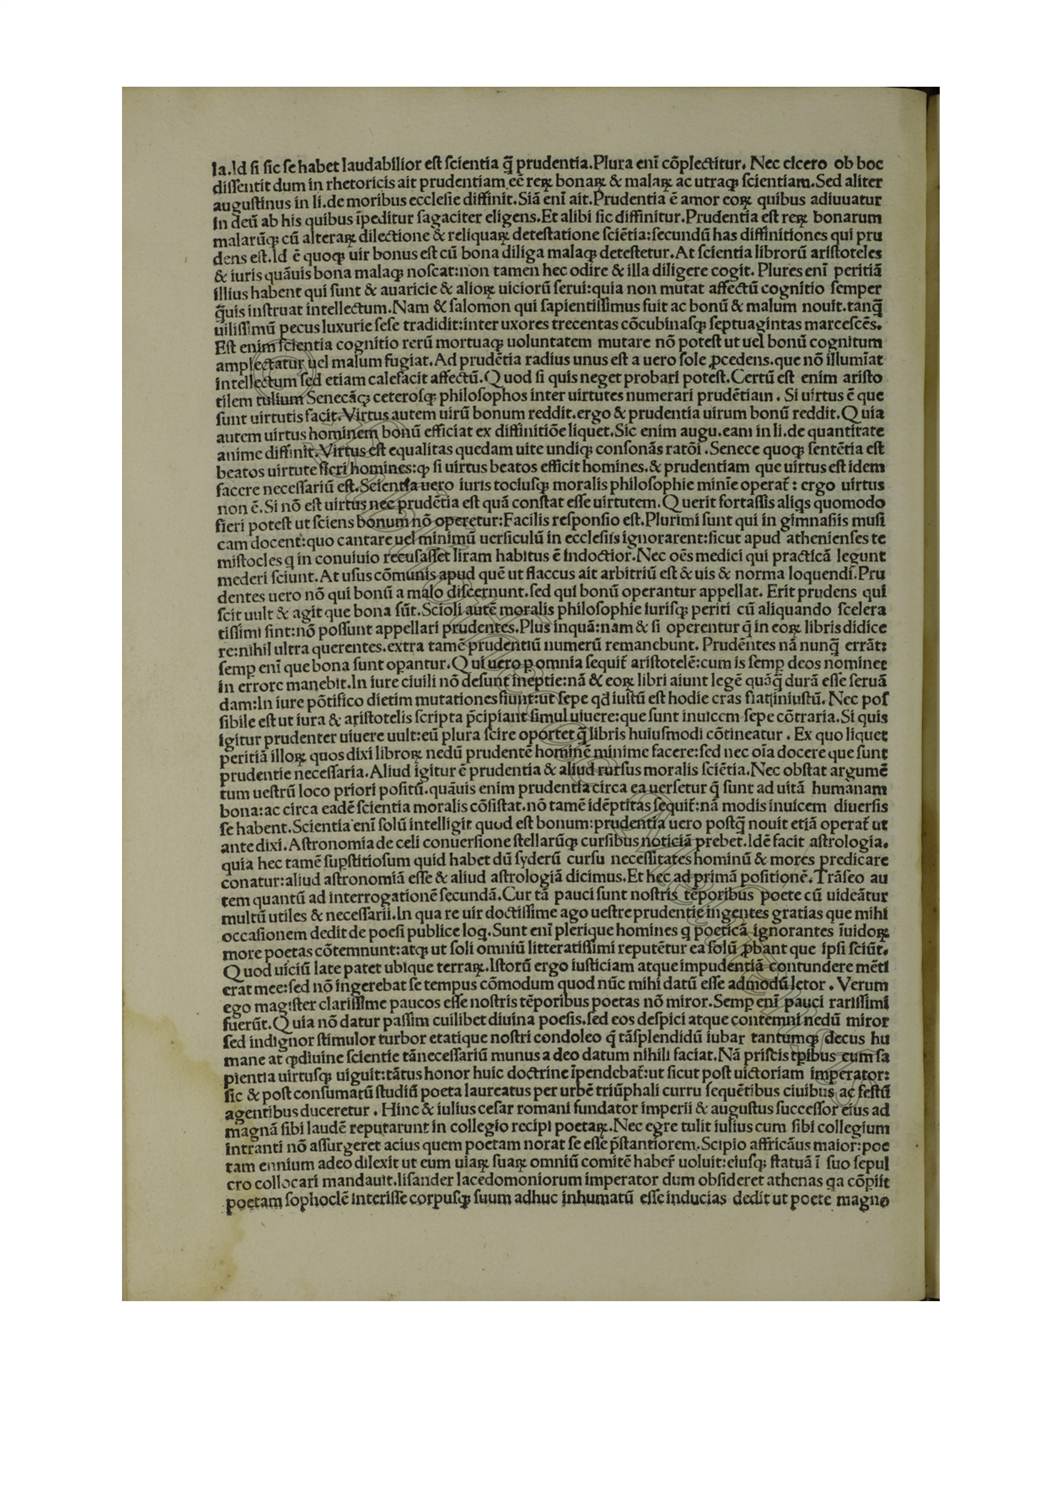 la.Id ſi ſic ſe habet laudabilior eſt ſcientia q̄ prudentia.Plura enī cōplectitur. Nec cicero ob hoc
diſſentit dum in rhetoricis ait prudentiam eē reꝝ bonaꝝ & malaꝝ ac utraqꝫ ſcientiam.Sed aliter
auguſtinus in li.de moribus eccleſie diffinit.Siā enī ait.Prudentia ē amor eoꝝ quibus adiuuatur
in deū ab his quibus īpeditur ſagaciter eligens.Et alibi ſic diffinitur.Prudentia eſt reꝝ bonarum
malarūqꝫ cū alteraꝝ dilectione & reliquaꝝ deteſtatione ſciētia:ſecundū has diffinitiones qui pru
dens eſt.Id ē quoqꝫ uir bonus eſt cū bona diliga malaqꝫ deteſtetur.At ſcientia librorū ariſtoteles
& iuris quāuis bona malaqꝫ noſcat:non tamen hec odire & illa diligere cogit. Plures enī peritiā
illius habent qui ſunt & auaricie & alioꝝ uiciorū ſerui:quia non mutat affectū cognitio ſemper
q̄uis inſtruat intellectum.Nam & ſalomon qui ſapientiſſimus fuit ac bonū & malum nouit.tanq̄
uiliſſimū pecus luxurie ſeſe tradidit:inter uxores trecentas cōcubinaſqꝫ ſeptuagintas marceſcēs.
Eſt enim ſcientia cognitio rerū mortuaqꝫ uoluntatem mutare nō poteſt ut uel bonū cognitum
amplectatur uel malum fugiat.Ad prudētia radius unus eſt a uero ſole ꝓcedens.que nō illumīat
intellectum ſed etiam calefacit affectū.Quod ſi quis neget probari poteſt.Certū eſt enim ariſto
tilem tulium Senecāqꝫ ceteroſqꝫ philoſophos inter uirtutes numerari prudētiam . Si uirtus ē que
ſunt uirtutis facit.Virtus autem uirū bonum reddit.ergo & prudentia uirum bonū reddit.Quia
autem uirtus hominem bonū efficiat ex diffinitiōe liquet.Sic enim augu.eam in li.de quantitate
anime diffinit.Virtus eſt equalitas quedam uite undiqꝫ conſonās ratōi . Senece quoqꝫ ſentētia eſt
beatos uirtute fieri homines:qꝫ ſi uirtus beatos efficit homines.& prudentiam que uirtus eſt idem
facere neceſſariū eſt.Scientia uero iuris tociuſqꝫ moralis philoſophie minīe operat̄ : ergo uirtus
non ē.Si nō eſt uirtus nec prudētia eſt quā conſtat eſſe uirtutem.Querit fortaſſis aliqs quomodo
fieri poteſt ut ſciens bonum nō operetur:Facilis reſponſio eſt.Plurimi ſunt qui in gimnaſiis muſi
cam docent:quo cantare uel minimū uerſiculū in eccleſiis ignorarent:ſicut apud athenienſes te
miſtocles q in conuiuio recuſaſſet liram habitus ē indoctior.Nec oēs medici qui practicā legunt
mederi ſciunt.At uſus cōmunis apud quē ut flaccus ait arbitriū eſt & uis & norma loquendi.Pru
dentes uero nō qui bonū a malo diſcernunt.ſed qui bonū operantur appellat. Erit prudens qui
ſcit uult & agit que bona ſūt.Scioli autē moralis philoſophie iuriſqꝫ periti cū aliquando ſcelera
tiſſimi ſint:nō poſſunt appellari prudentes.Plus inquā:nam & ſi operentur q̄ in eoꝝ libris didice
re:nihil ultra querentes.extra tamē prudentiū numerū remanebunt. Prudētes nā nunq̄ errāt:
ſemꝑ enī que bona ſunt opantur.Qui uero ꝑ omnia ſequit̄ ariſtotelē:cum is ſemꝑ deos nominet
in errore manebit.In iure ciuili nō deſunt ineptie:nā & eoꝝ libri aiunt legē quāq̄ durā eſſe ſeruā
dam:in iure pōtifico dietim mutationes fiunt:ut ſepe qd̄ iuſtū eſt hodie cras fiat iniuſtū. Nec poſ
ſibile eſt ut iura & ariſtotelis ſcripta p̄cipiant ſimul uiuere:que ſunt inuicem ſepe cōtraria.Si quis
igitur prudenter uiuere uult:eū plura ſcire oportet q̄ libris huiuſmodi cōtineatur . Ex quo liquet
peritiā illoꝝ quos dixi libroꝝ nedū prudentē hominē minime facere:ſed nec oīa docere que ſunt
prudentie neceſſaria.Aliud igitur ē prudentia & aliud rurſus moralis ſciētia.Nec obſtat argumē
tum ueſtrū loco priori poſitū.quāuis enim prudentia circa ea uerſetur q̄ ſunt ad uitā humanam
bona:ac circa eadē ſcientia moralis cōſiſtat.nō tamē idēptitas ſequit̄:nā modis inuicem diuerſis
ſe habent.Scientia enī ſolū intelligit quod eſt bonum:prudentia uero poſtq̄ nouit etiā operat̄ ut
ante dixi.Aſtronomia de celi conuerſione ſtellarūqꝫ curſibus noticiā prebet.Idē facit aſtrologia.
quia hec tamē ſupſtitioſum quid habet dū ſyderū curſu neceſſitates hominū & mores predicare
conatur:aliud aſtronomiā eſſe & aliud aſtrologiā dicimus.Et hec ad primā poſitionē.Trāſeo au
tem quantū ad interrogationē ſecundā.Cur tā pauci ſunt noſtris tēporibus poete cū uideātur
multū utiles & neceſſarii.In qua re uir doctiſſime ago ueſtre prudentie ingentes gratias que mihi
occaſionem dedit de poeſi publice loq.Sunt enī plerique homines q poeticā ignorantes īuidoꝝ
more poetas cōtemnunt:atqꝫ ut ſoli omniū litteratiſſimi reputētur ea ſolū ꝓbant que ipſi ſciūt.
Quod uiciū late patet ubique terraꝝ.Iſtorū ergo iuſticiam atque impudentiā contundere mēti
erat mee:ſed nō ingerebat ſe tempus cōmodum quod nūc mihi datū eſſe admodū letor . Verum
ego magiſter clariſſime paucos eſſe noſtris tēporibus poetas nō miror.Semꝑ enī pauci rariſſimi
fuerūt.Quia nō datur paſſim cuilibet diuina poeſis.ſed eos deſpici atque contemni nedū miror
ſed indignor ſtimulor turbor etatique noſtri condoleo q̄ tāſplendidū iubar tantumqꝫ decus hu
mane at qꝫdiuine ſcientie tāneceſſariū munus a deo datum nihili faciat.Nā priſcis tꝑibus cum ſa
pientia uirtuſqꝫ uiguit:tātus honor huic doctrine īpendebat̄:ut ſicut poſt uictoriam imperator:
ſic & poſt conſumatū ſtudiū poeta laureatus per urbē triūphali curru ſequētibus ciuibus ac feſtū
agentibus duceretur . Hinc & iulius ceſar romani fundator imperii & auguſtus ſucceſſor eius ad
magnā ſibi laudē reputarunt in collegio recipi poetaꝝ.Nec egre tulit iulius cum ſibi collegium
intranti nō aſſurgeret acius quem poetam norat ſe eſſe p̄ſtantiorem.Scipio affricāus maior:poe
tam ennium adeo dilexit ut eum uiaꝝ ſuaꝝ omniū comitē haber̄ uoluit:eiuſqꝫ ſtatuā ī ſuo ſepul
cro collocari mandauit.liſander lacedomoniorum imperator dum obſideret athenas qa cōpiit
poetam ſophoclē interiſſe corpuſqꝫ ſuum adhuc inhumatū eſſe inducias dedit ut poete magno